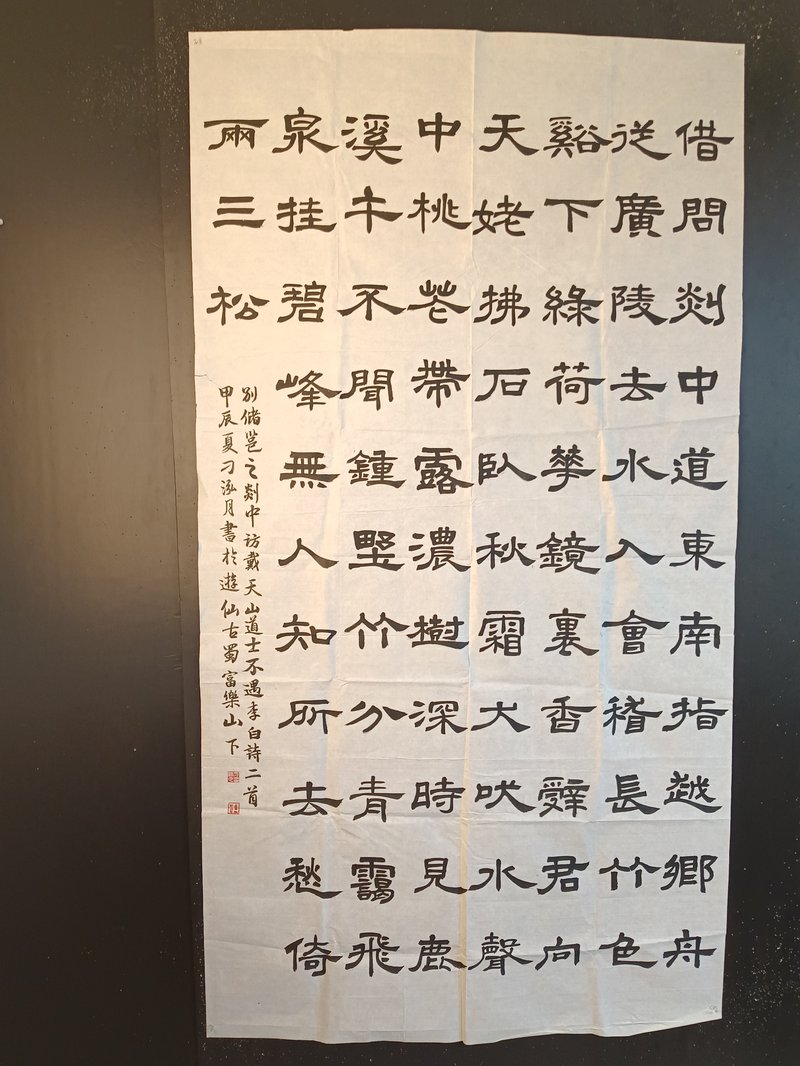 借問剡中道東南指越鄉舟
從廣陵去水入會稽長竹色
谿下綠荷華鏡裏香辭君向
天姥拂石臥秋霜犬吠水聲
中桃花帶露濃樹深時見鹿
溪午不聞鍾墅竹分青靄飛
泉挂碧峰無人知所去愁倚
兩三松
別儲邕之剡中访戴天山道士不遇李白詩二首
甲辰夏刁泓月書於遊仙古蜀富樂山下